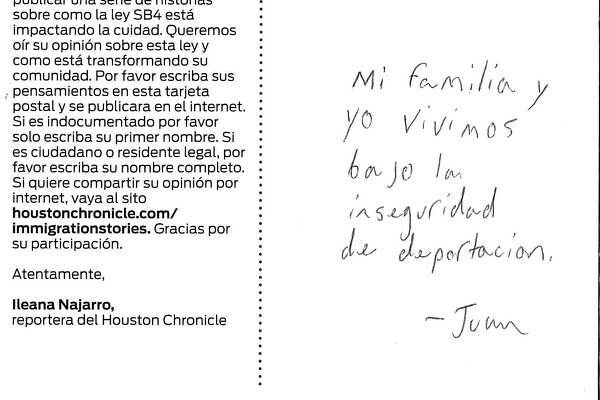 publicar una serie de historias
sobre como la ley SB4 está
impactando la cuidad. Queremos
oír su opinión sobre esta ley y
como está transformando su
comunidad. Por favor escriba sus
pensamientos en esta tarjeta
postal y se publicara en el internet.
Si es indocumentado por favor
solo escriba su primer nombre. Si
es ciudadano o residente legal, por
favor escriba su nombre completo.
Si quiere compartir su opinión por
internet, vaya al sito
houstonchronicle.com/
immigrationstories. Gracias por
su participación.
Atentamente,
Ileana Najarro,
reportera del Houston Chronicle
Mi familia y
yo vivimos
bajo la
inseguridad
de deportacion.
- Juan